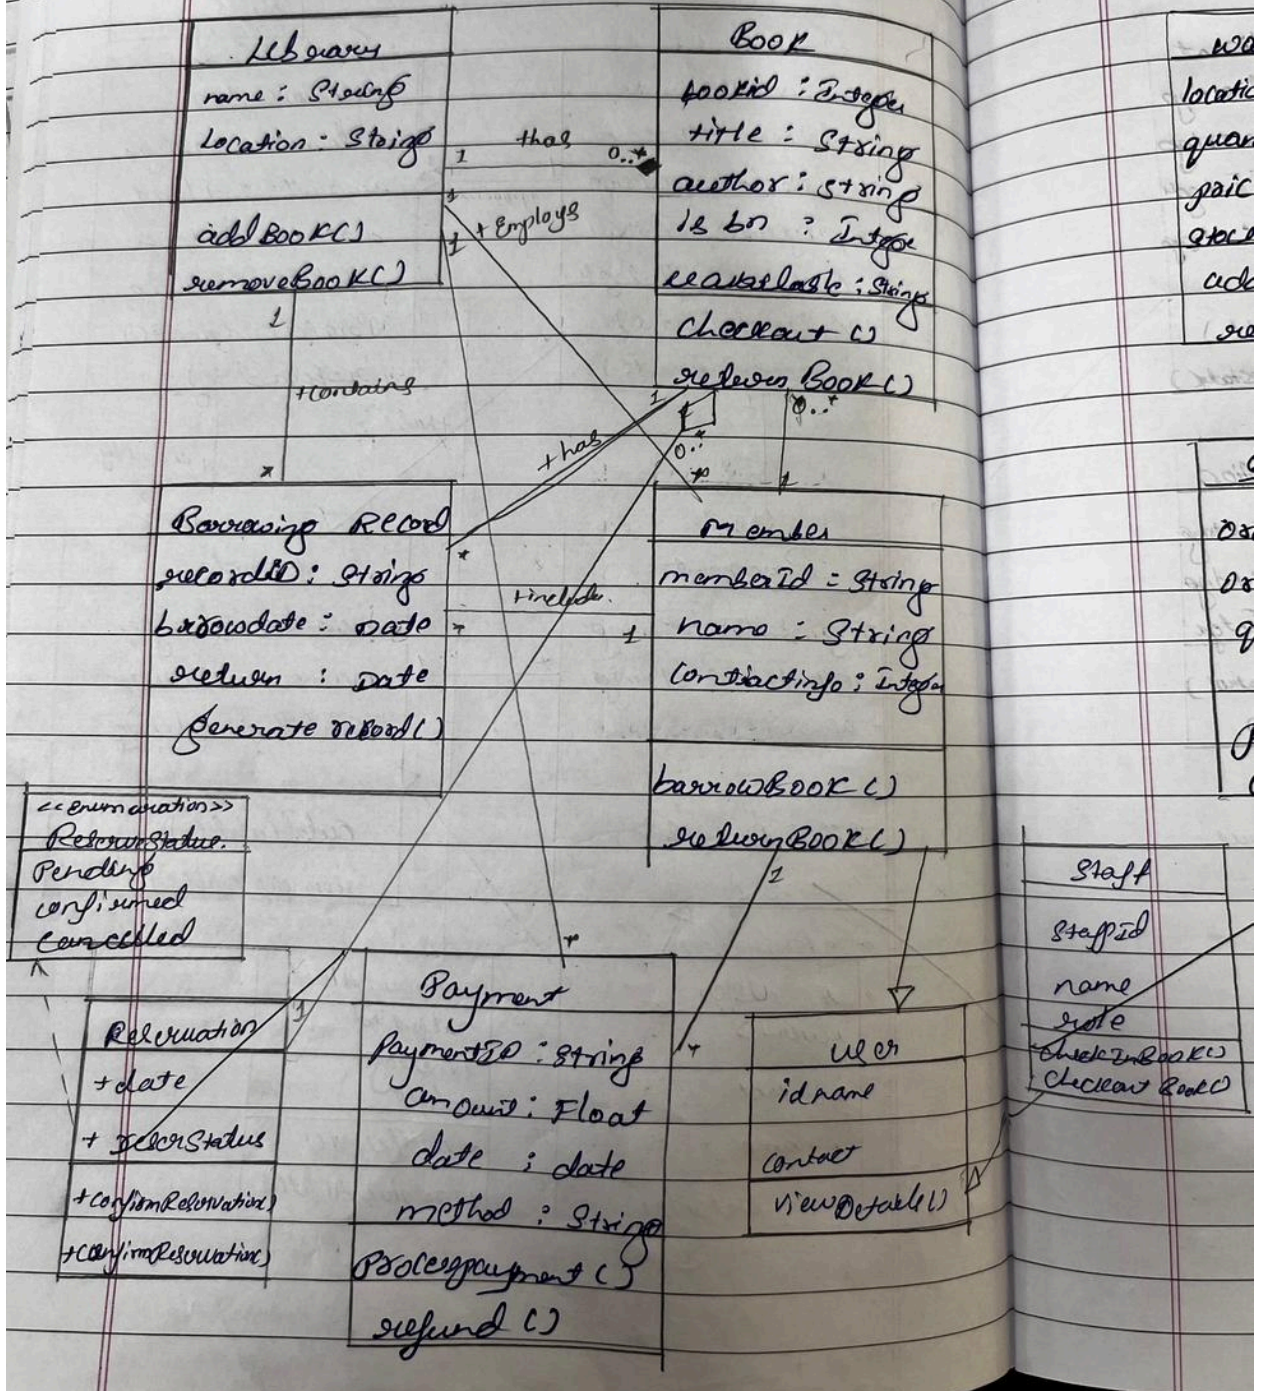 Library
name : String
Location : String
addBook()
removeBook()
1
+has
0..*
1
+Employs
1
Book
bookid : Integer
title : String
author : String
Isbn : Integer
: String
checkout ()
return Book ()
1
+contains
*
1
+has
1
0..*
*
0..*
1
Borrowing Record
recordID : String
borrowdate : Date
return : Date
generate record()
*
*
+include.
1
Member
memberId : String
name : String
contactinfo : Integer
barrowBook ()
returnBook ()
1
*
<<enumaration>>
ReserveStatus.
Pending
confirmed
Cancelled
*
1
Reservation
+date
+
+confirmReservation()
+confirmReservation()
Payment
PaymentID : String
amount : Float
date : date
method : String
Processpayment ()
refund ()
user
id name
contact
viewDetails()
Staff
StaffId
name
role
checkInBook()
checkout Book()
locatio
quan
paic
stoc
add
re
or
or
q